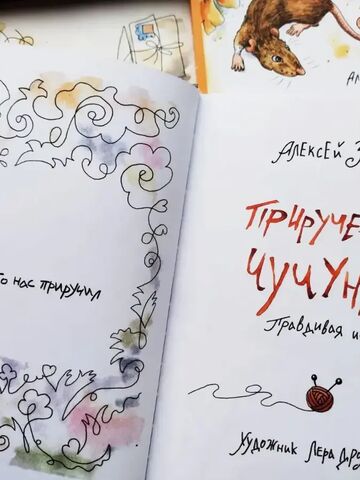 Ал
то нас приручил
Алексей
Прируче
Чучун
Правдивая и
Художник Лера